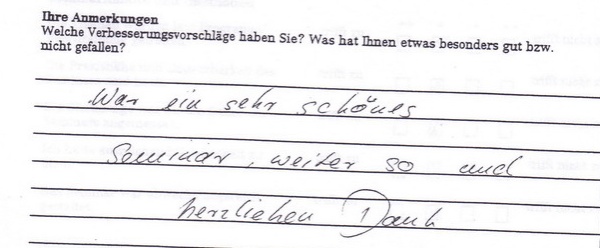 Ihre Anmerkungen
Welche Verbesserungsvorschläge haben Sie? Was hat Ihnen etwas besonders gut bzw.
nicht gefallen?
War ein sehr schönes
Seminar, weiter so und
herzlichen Dank